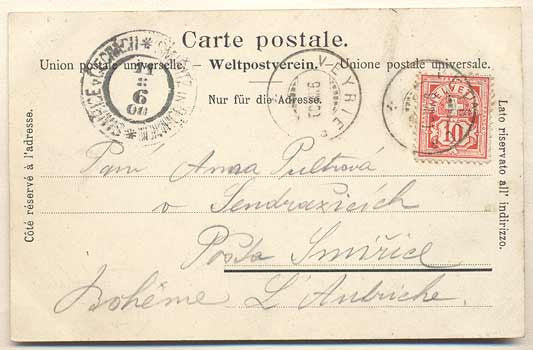 Carte postale.
Union postale universelle. — Weltpostverein. — Unione postale universale.
Nur für die Adresse.
Côté réservé à l'adresse.
Lato riservato all' indirizzo.
HELVETIA
10
11
6
00
Paní Anna Pultrová
v Sendražicích
Posta Smiřice
Bohême L'Autriche.